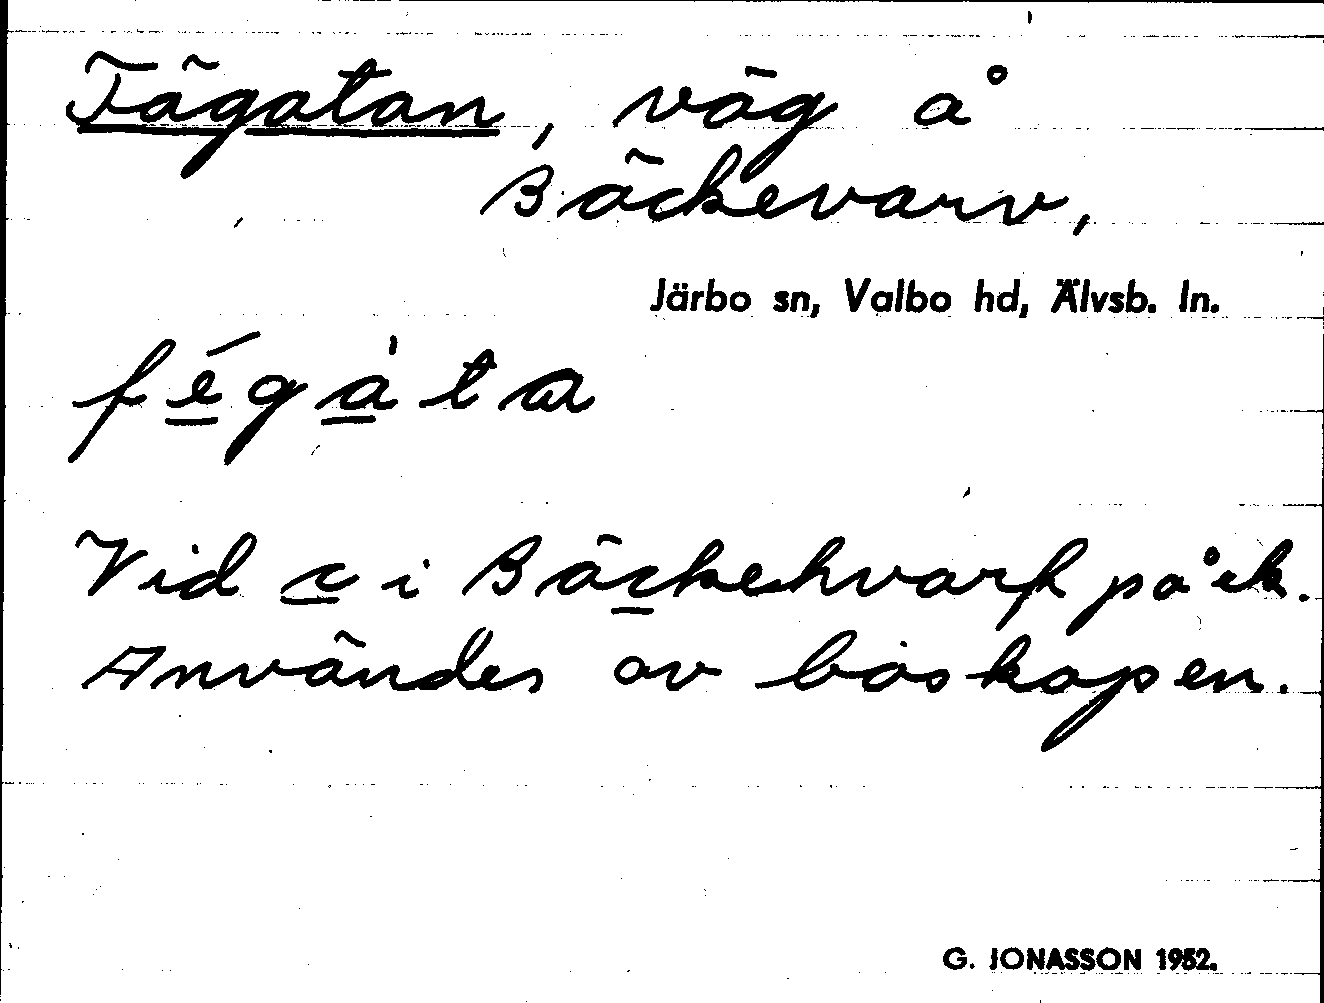 Fägatan, väg å
Bäckevarv,
Järbo sn, Valbo hd, Älvsb. ln.
fégàta
Vid c i Bäckehvarf på ek.
Användes av boskapen.
G. JONASSON 1952.